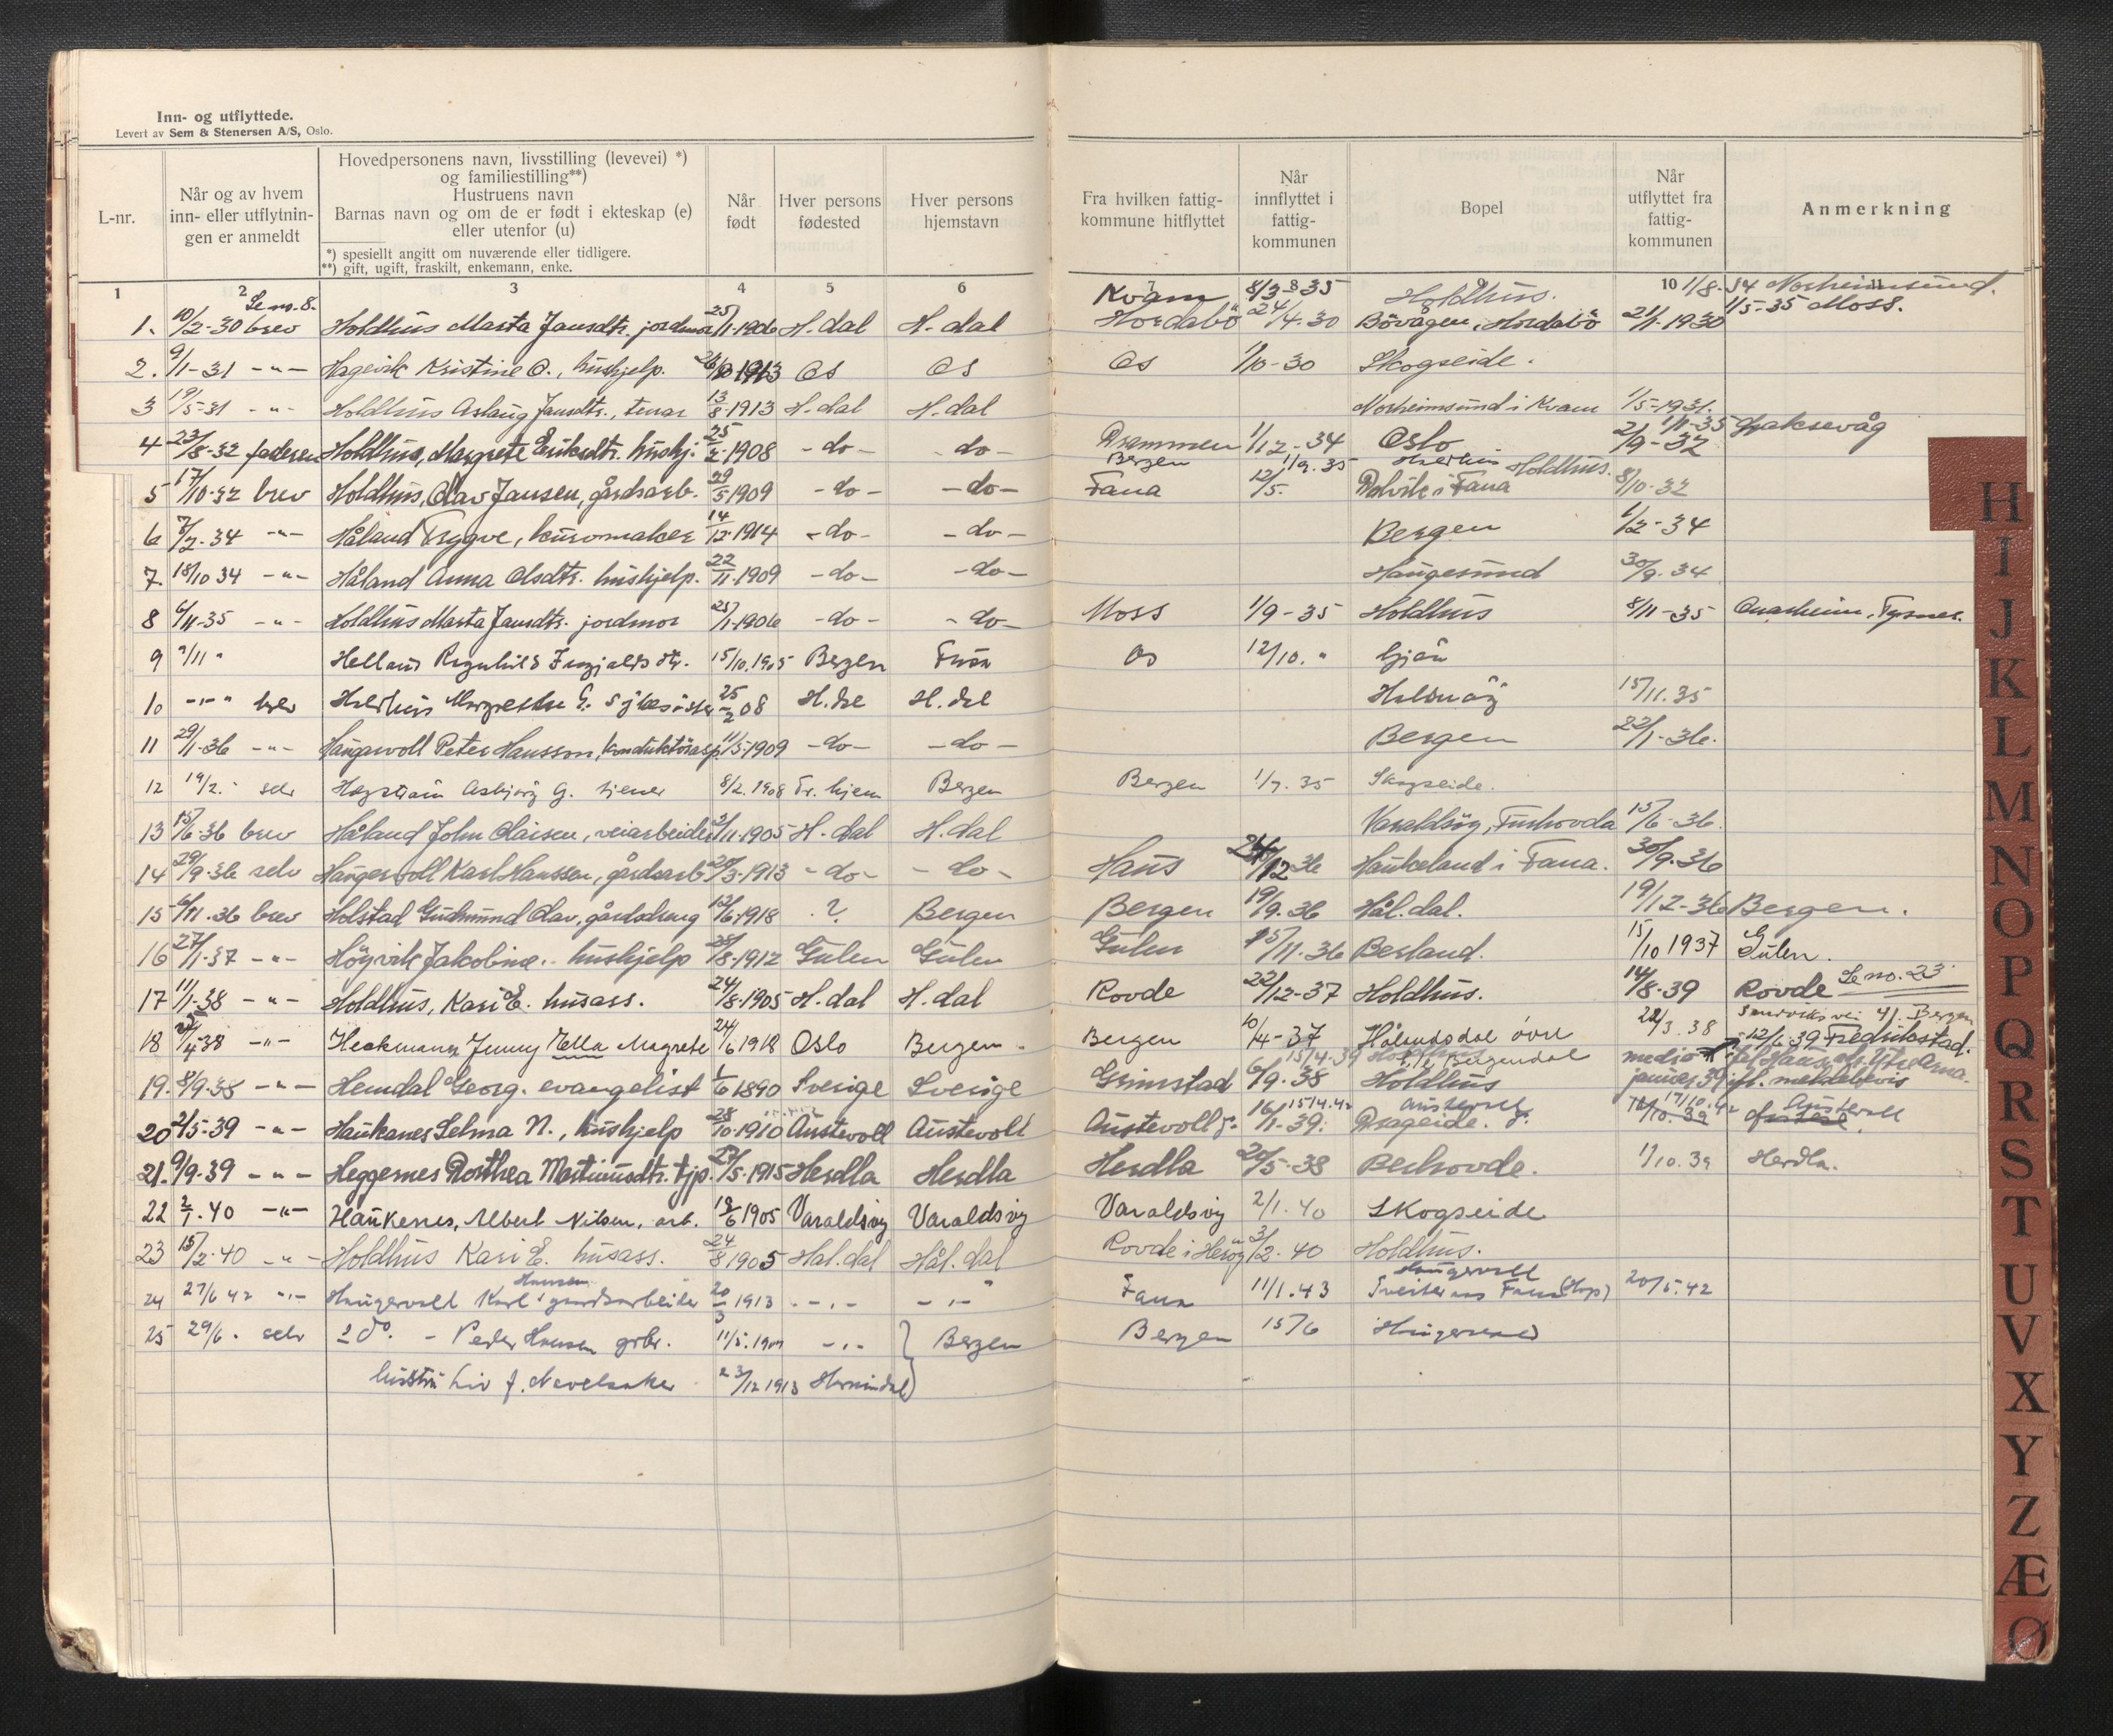 Inn- og utflyttede.
Levert av Sem & Stenersen A/S, Oslo.
L-nr.
Når og av hvem
inn- eller utflytnin-
gen er anmeldt
Hovedpersonens navn, livsstilling (levevei) *)
og familiestilling**)
Hustruens navn
Barnas navn og om de er født i ekteskap (e)
eller utenfor (u)
*) spesiellt angitt om nuværende eller tidligere.
**) gift, ugift, fraskilt, enkemann, enke.
Når
født
Hver persons
fødested
Hver persons
hjemstavn
Fra hvilken fattig-
kommune hitflyttet
Når
innflyttet i
fattig-
kommunen
Bopel
Når
utflyttet fra
fattig-
kommunen
Anmerkning
1 2 3 4 5 6 7 8 10 11
Se no. 8. Kvam 8/3 35 Holdhus. 1/8-34 Norheimsund.
1. 10/2-30 brev Holdhus Marta Jansdtr. jordmor 25/1-1906 H.dal H.dal Hordabö 24/4.30 Bövågen, Hordabö 21/1-1930 1/5-35 Moss.
2. 9/1-31 -"- Hagevik Kristine O., hushjelp. 1913 Os Os Os 1/10-30 Skogseide.
3 19/5-31 -"- Holdhus Aslaug Jansdtr., 13/8-1913 H.dal H.dal Norheimsund i Kvam 1/5-1931.
4 23/8-32 faderen Holdhus, Margrete Eriksdtr. hushj. 25/2-1908 -do- -do- Drammen 1/12-34 Oslo 2/9-32 1/11-35
Bergen 1/9.35 Holdhus.
5 17/10-32 brev Holdhus, Olav Jansen, gårdsarb. 29/5 1909 -do- -do- Fana 12/5. i Fana 8/10-32
6 7/2-34 -"- Håland Trygve, 14/12-1914 -do- -do- Bergen 1/2-34
7. 18/10 34 -"- Håland Anna Olsdtr. hushjelp. 22/11-1909 -do- -do- Haugesund 30/9.34
8 6/11-35 -"- Holdhus Marta Jansdtr. jordmor 25/1-1906 -do- -do- Moss 1/9-35 Holdhus 8/11-35 Onarheim, Tysnes.
9 "/11 " Helland Ragnhild 15/10.1905 Bergen Os 12/10. " Gjön
10 -"- brev Holdhus Margrethe E. 25/2 08 H.dal H.dal Halsnöy 15/11.35
11 29/1-36 -"- Haugervoll Peter Hansson, 11/5-1909 -do- -do- Bergen 22/1-36.
12 19/2.- selv Asbjörg G. tjener 8/2.1908 Tr.hjem Bergen Bergen 1/7.35 Skogseide.
13 15/6-36 brev Håland John Olaisen, veiarbeider 21/11-1905 H.dal H.dal Varaldsöy, 15/6-36.
14 29/9-36 selv Haugervoll Karl Hanssen, gårdsarb 20/3-1913 -do- -do- Haus 12 36 Haukeland i Fana. 30/9.36
15 6/11.36 brev Holstad Gudmund Olav, gårdsdreng 13/6-1918 ? Bergen Bergen 19/9.36 Hål.dal. 19/12-36 Bergen.
16 27/1-37 -"- Höyvik Jakobine. hushjelp 28/8-1912 Gulen Gulen Gulen 15/11.36 Berland. 15/10 1937 Gulen.
17 11/1-38 -"- Holdhus, Kari E. husass. 24/8-1905 H.dal H.dal Rovde 22/12-37 Holdhus. 14/8-39 Rovde Se no. 23
18 4-38 -"- Heckmann Jenny Nella Magrete 24/6 1918 Oslo Bergen Bergen 10/4-37 Hålandsdal övre 22/3.38 41. Bergen
15/4.39 Bergendal medio 12/6-39 Fredrikstad.
19. 8/9-38 -"- Hemdal Georg. evangelist 1/6 1890 Sverige Sverige Grimstad 6/9-38 Holdhus januar 39 ifl. meldebevis
15/4.42 Austevoll 17/10.42 Austevoll
20 2/5-39 -"- Haukanes Selma N., hushjelp 28/10-1910 Austevoll Austevoll Austevoll 16/1-39. 10.39
21. 9/9-39 -"- Heggernes Dorthea tjp. 23/5-1915 Herdla Herdla Herdla 20/5-38 Berhovde. 1/10.39 Herdla.
22 2/1.40 -"- Haukenes, Albert Nilsen, arb. 19/6 1905 Varaldsöy Varaldsöy Varaldsöy 2/1.40 Skogseide
23 15/2-40 -"- Holdhus Kari E. husass. 24/8 1905 Hål.dal Hål.dal Rovde i Heröy 3/2-40 Holdhus.
Hansen Haugervoll
24 27/6 42 -"- Haugervoll Karl gaardsarbeider 20/3 1913 -"- -"- Fana 11/1.43 Fana (Hop) 20/5.42
25 29/6. selv do. - Peder Hansen grbr. 11/5.1909 -"- Bergen Bergen 15/6 Haugervoll
hustru Liv f. Navelsaker 23/12 1913 Hornindal
H
I
J
K
L
M
N
O
P
Q
R
S
T
U
V
X
Y
Z
Æ
Ø